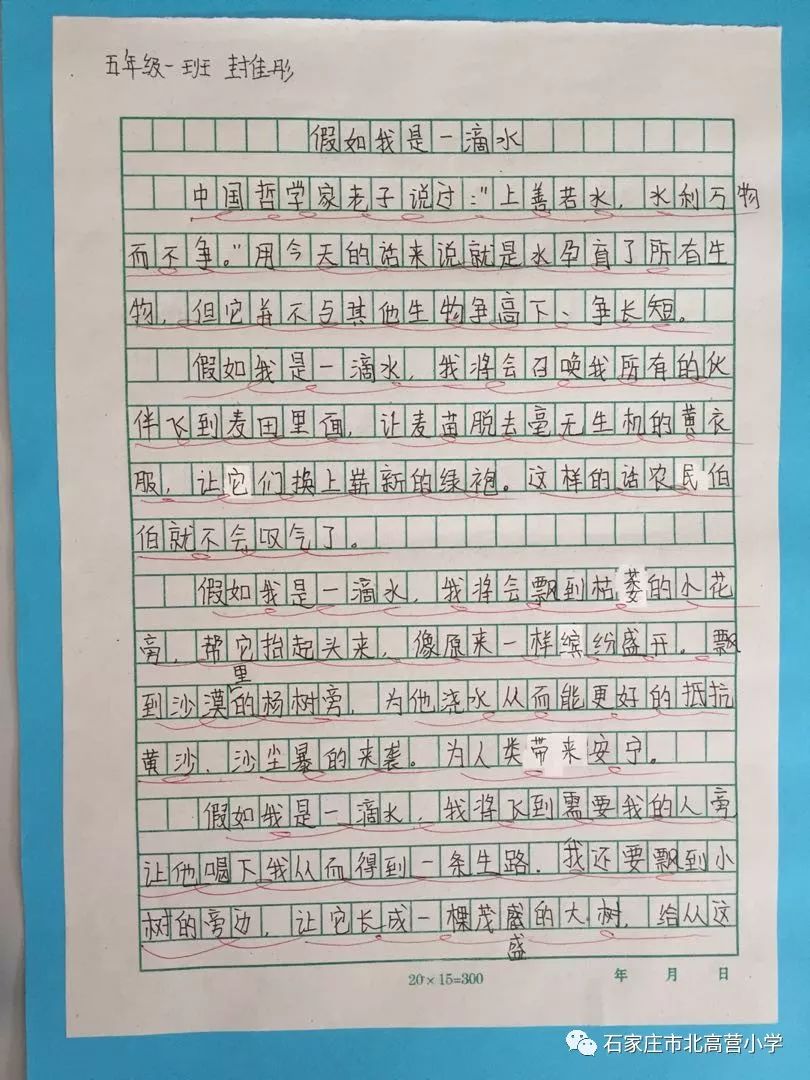 五年级一班 封佳彤
假如我是一滴水
中国哲学家老子说过:"上善若水,水利万物
而不争。"用今天的话来说就是水孕育了所有生
物,但它并不与其他生物争高下、争长短。
假如我是一滴水,我将会召唤我所有的伙
伴飞到麦田里面,让麦苗脱去毫无生机的黄衣
服,让它们换上崭新的绿袍。这样的话农民伯
伯就不会叹气了。
假如我是一滴水,我将会飘到枯萎的小花
旁,帮它抬起头来,像原来一样缤纷盛开。飘
到沙漠里的杨树旁,为他浇水从而能更好的抵抗
黄沙、沙尘暴的来袭。为人类带来安宁。
假如我是一滴水,我将飞到需要我的人旁
让他喝下我从而得到一条生路.我还要飘到小
树的旁边,让它长成一棵茂盛的大树,给从这
盛
20×15=300 年 月 日
石家庄市北高营小学